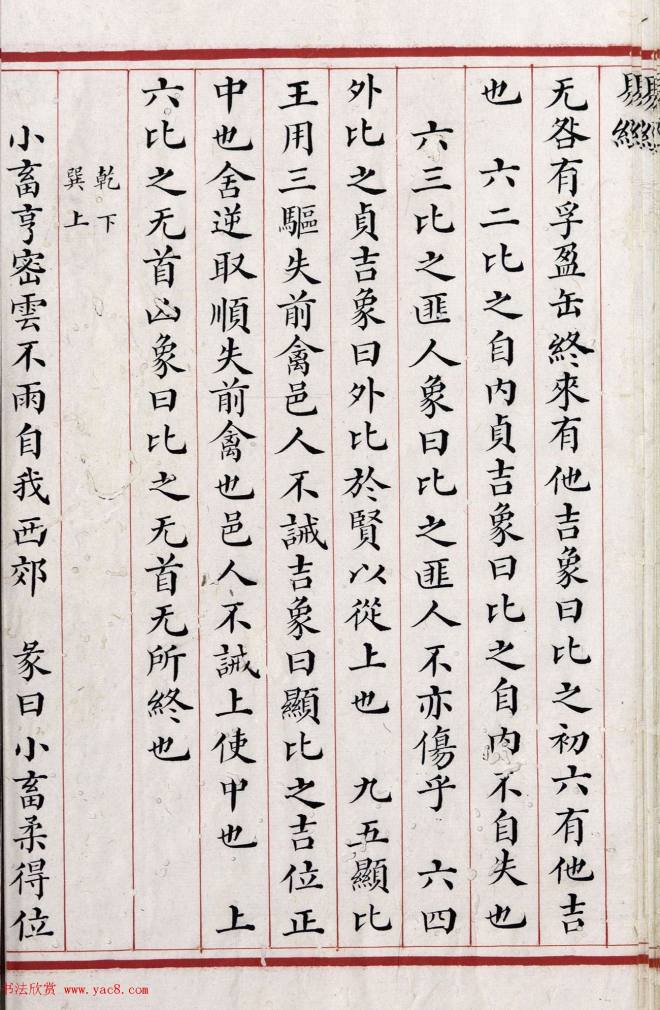 易經
无咎有孚盈缶終來有他吉象曰比之初六有他吉
也　六二比之自内貞吉象曰比之自内不自失也
六三比之匪人象曰比之匪人不亦傷乎　六四
外比之貞吉象曰外比於賢以從上也　九五顯比
王用三驅失前禽邑人不誡吉象曰顯比之吉位正
中也舍逆取順失前禽也邑人不誡上使中也　上
六比之无首凶象曰比之无首无所終也
乾下
巽上
小畜亨密雲不雨自我西郊　彖曰小畜柔得位
书法欣赏 www.yac8.com